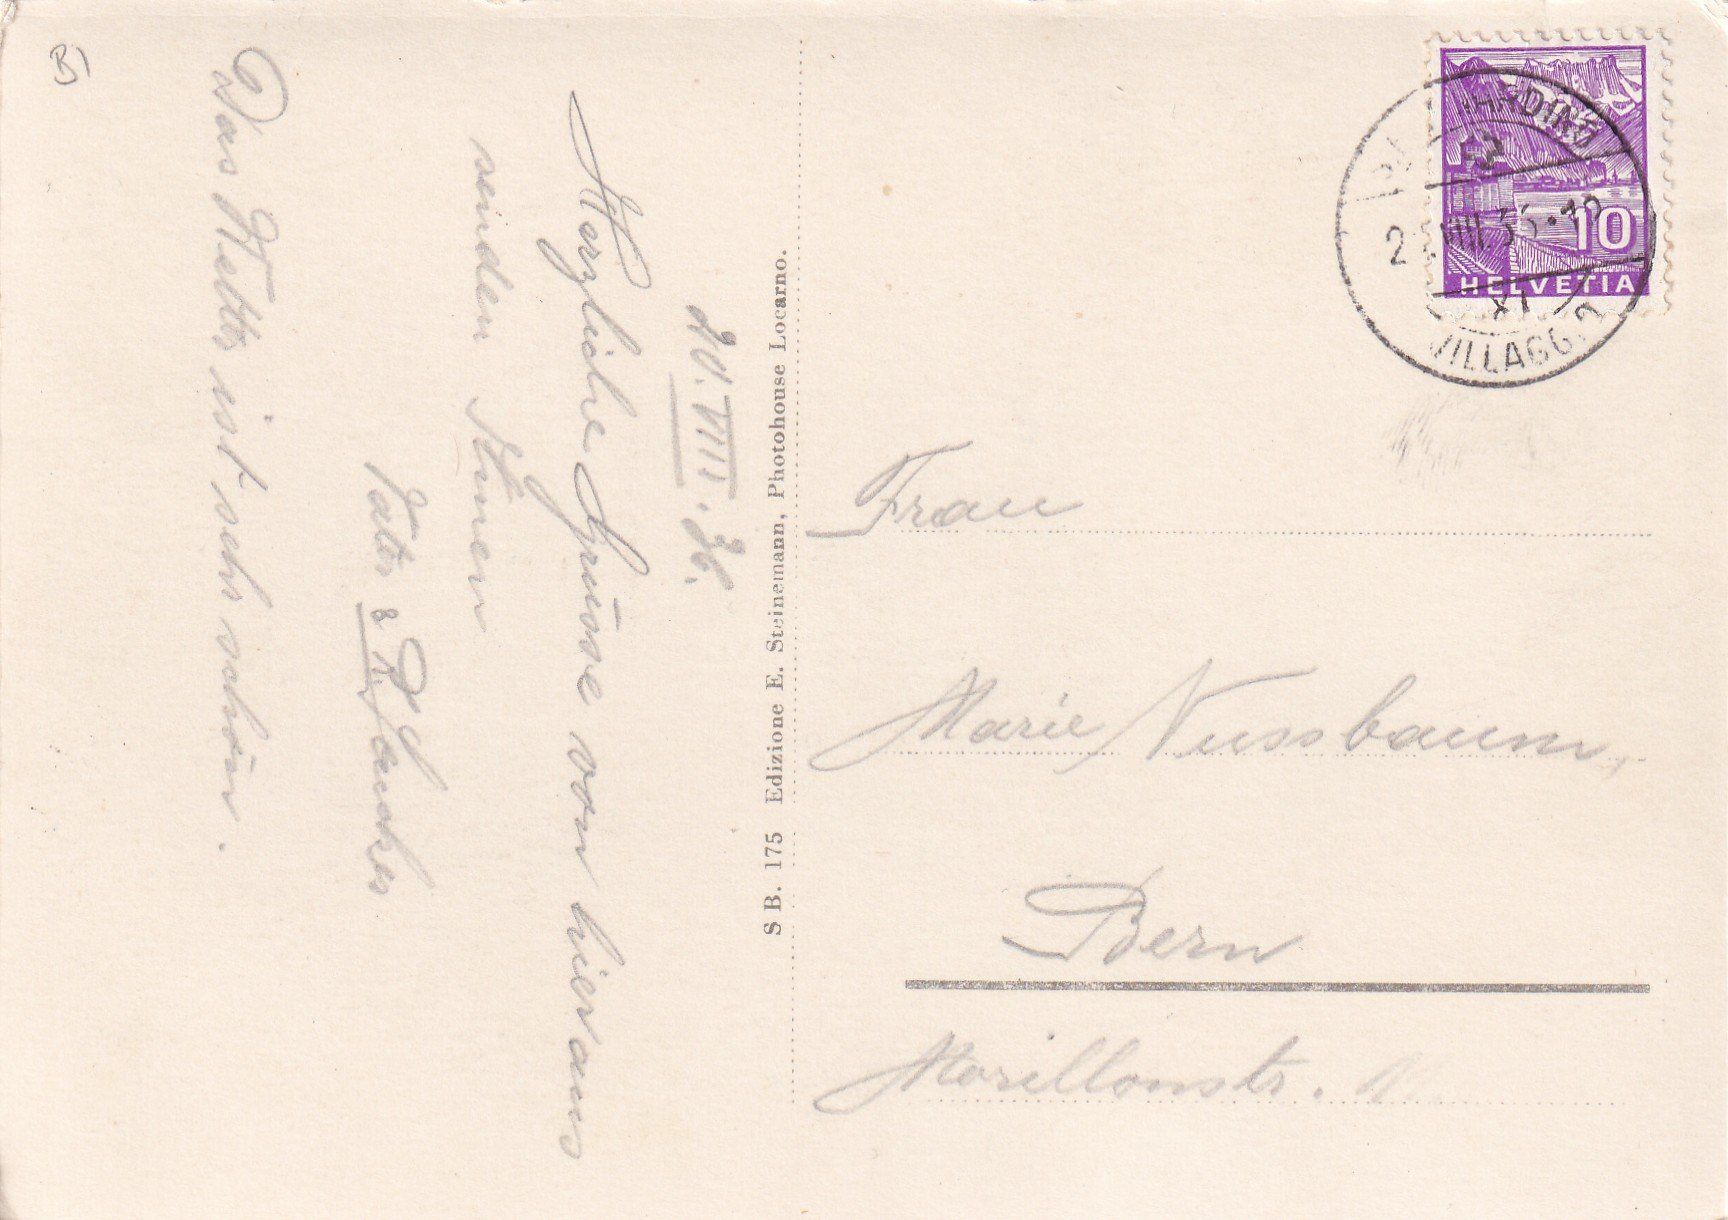 20.VIII.36.
Herzliche Grüsse von hier aus
senden Ihnen
Vater &
Das Wetter ist sehr schön.
S B. 175 Edizione E. Steinemann, Photohouse Locarno.
HELVETIA
10
VILLAGGIO
Frau
Marie Nussbaum,
Bern
Morillonstr.